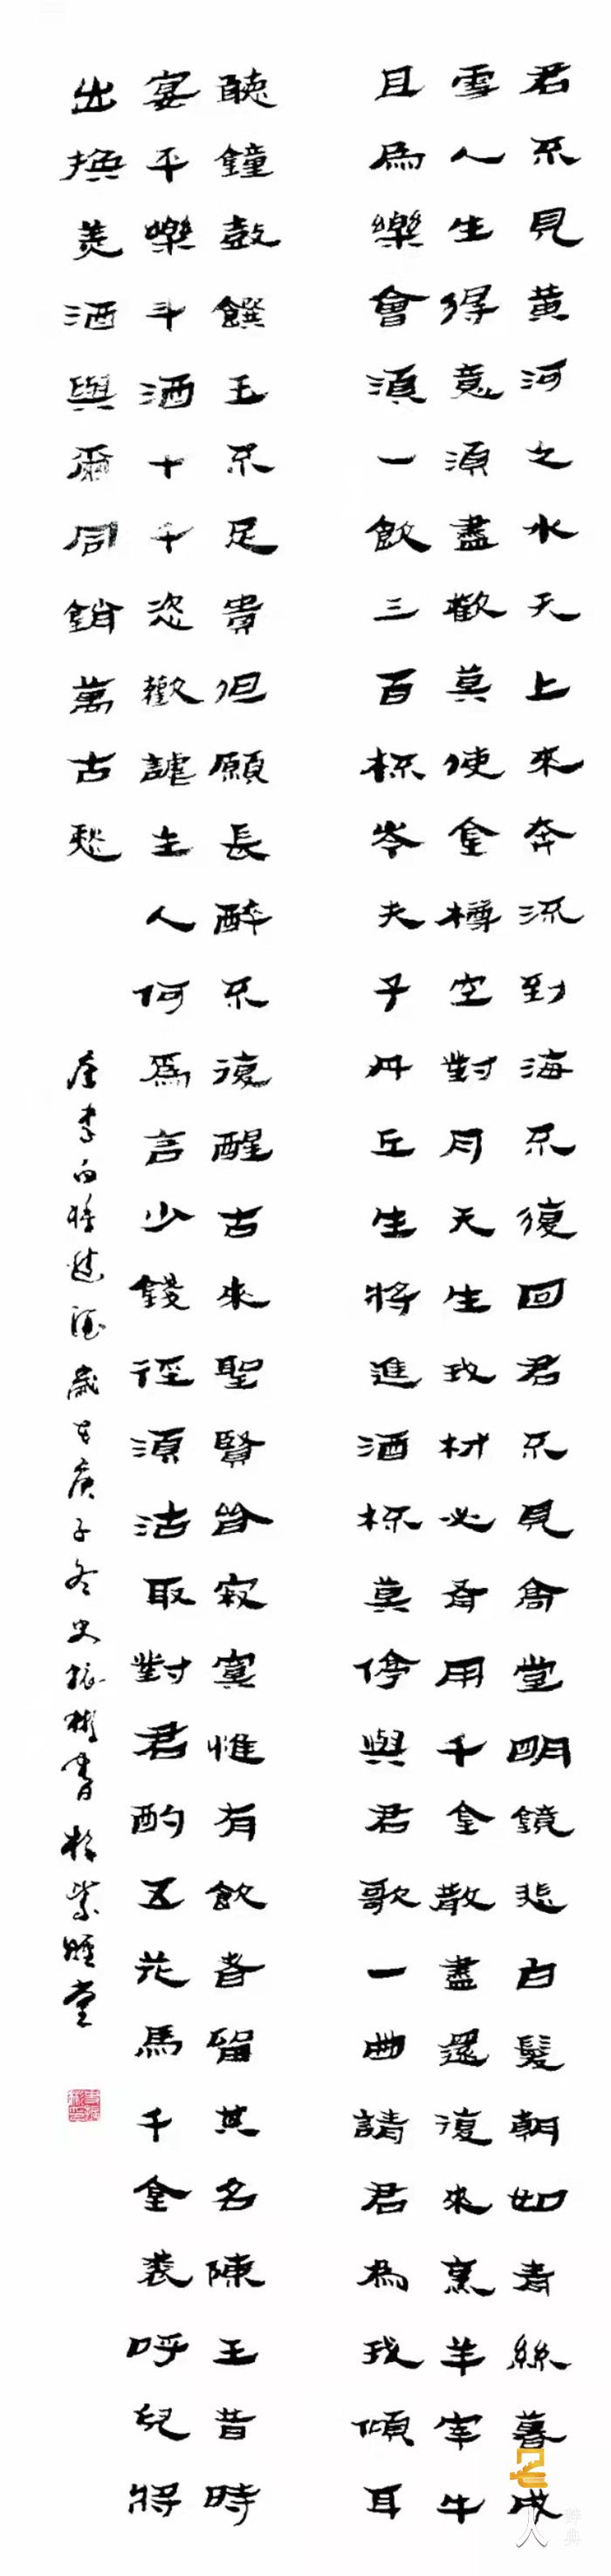 君不見黃河之水天上來奔流到海不復回君不見高堂明鏡悲白髮朝如青絲暮成
雪人生得意須盡歡莫使金樽空對月天生我材必有用千金散盡還復來烹羊宰牛
且為樂會須一飲三百杯岑夫子丹丘生將進酒杯莫停與君歌一曲請君為我傾耳
聽鐘鼓饌玉不足貴但願長醉不復醒古來聖賢皆寂寞惟有飲者留其名陳王昔時
宴平樂斗酒十千恣歡謔主人何為言少錢徑須沽取對君酌五花馬千金裘呼兒將
出換美酒與爾同銷萬古愁
唐李白將進酒歲在庚子冬史振彬書於紫堂
人辞典